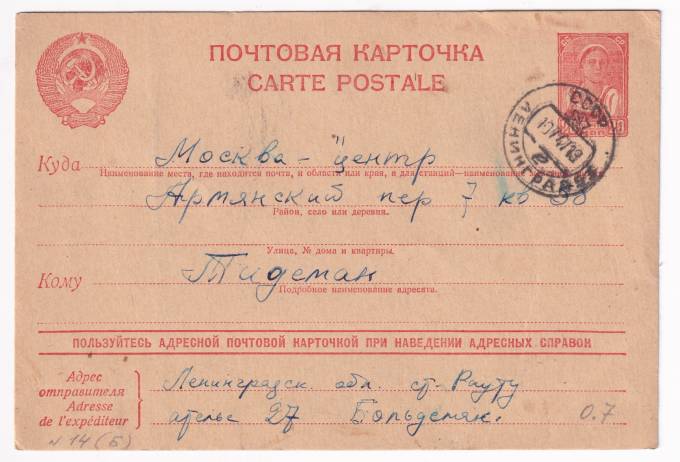 ПОЧТОВАЯ КАРТОЧКА
CARTE POSTALE
СССР
ЛЕНИН
Куда Москва - центр
Наименование места, где находится почта, и области или края, а для станций—наименование
Армянский пер 7 кв 38
Район, село или деревня.
Улица, № дома и квартиры.
Кому Тидеман
Подробное наименование адресата.
ПОЛЬЗУЙТЕСЬ АДРЕСНОЙ ПОЧТОВОЙ КАРТОЧКОЙ ПРИ НАВЕДЕНИИ АДРЕСНЫХ СПРАВОК
Адрес отправителя
Adresse de l'expéditeur
Ленинградск. обл. ст. Рауту
ателье 27 Больдеман.
0.7
N 14 (Б)